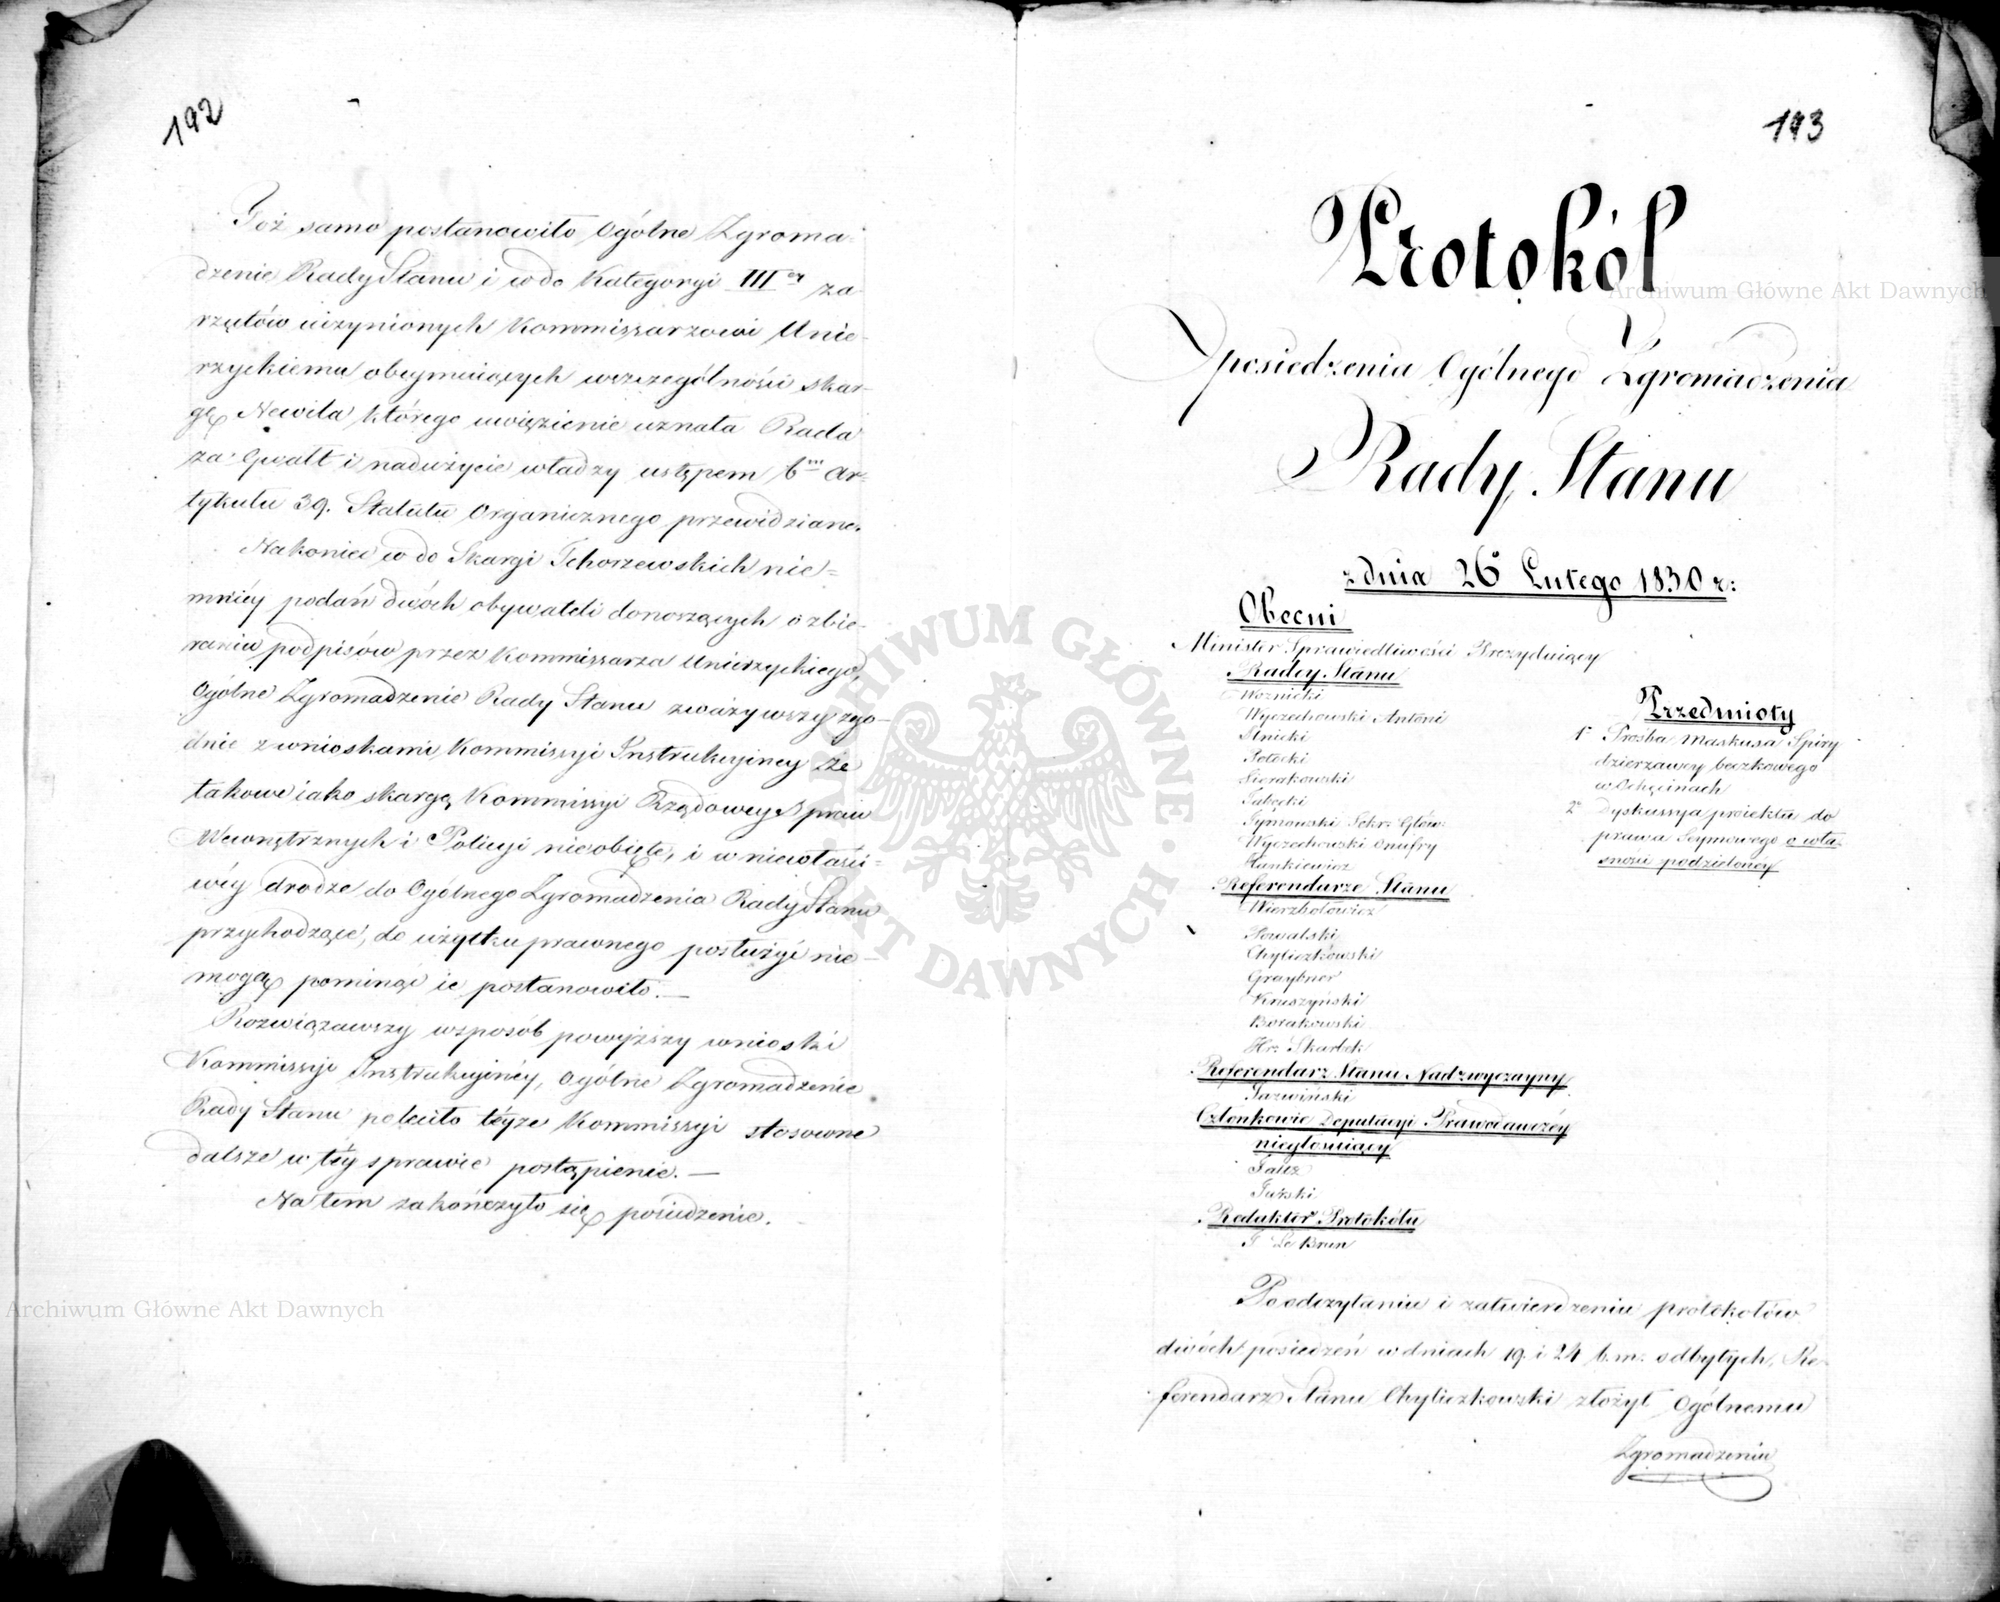 192
Toż samo postanowiło Ogólne Zgroma=
dzenie Rady Stanu i w do Kategoryi III<sup>ey</sup> za
rzutów uczynionych Kommissarzowi Unie-
rzyckiemu obeymuiących wszczególności skar-
gę Newila którego uwięzienie uznała Rada
za gwałt i nadużycie władzy ustępem 6<sup>m</sup> Ar-
tykułu 39. Statutu Organicznego przewidziane.
Nakoniec w do Skargi Tchorzewskich nie=
mniéy podań dwóch obywateli donoszących o zbie-
raniu podpisów przez Kommissarza Unierzyckiego,
Ogólne Zgromadzenie Rady Stanu zważywszy zgo-
dnie z wnioskami Kommissyi Instrukcyiney że
takowe iako skargą Kommissyi Rządowey Spraw
Wewnętrznych i Policyi nieobięte, i w niewłaści=
wéy drodze do Ogólnego Zgromadzenia Rady Stanu
przychodzące, do użytku prawnego posłużyć nie-
mogą pominąć ie postanowiło.—
Rozwiązawszy wsposób powyższy wnioski
Kommissyi Instrukcyinéy, Ogólne Zgromadzenie
Rady Stanu poleciło téyże Kommissyi stosowne
dalsze w téy sprawie postąpienie.—
Na tem zakończyło się posiedzenie.
193
Protokół
posiedzenia Ogólnego Zgromadzenia
Rady Stanu
z dnia 26 Lutego 1830 r:
Obecni
Minister Sprawiedliwości Prezyduiący
Radcy Stanu
Woźnicki
Wyczechowski Antoni
Potocki
Sierakowski
Tymowski Sekr: Głów:
Wyczechowski Onufry
Hankiewicz
Referendarze Stanu
Wierzbołowicz
Kowalski
Chyliczkowski
Graybner
Kruszyński
Borakowski
Hr: Skarbek
Referendarz Stanu Nadzwyczayny
Tarwiński
Członkowie Deputacyi Prawodawczéy
niegłosuiący
Faltz
Turski
Redaktor Protokółu
F Le Brun
Przedmioty
1<sup>o</sup> Prośba Maskusa Spiry
dzierzawcy beczkowego
w Chęcinach
2<sup>o</sup> Dyskussya proiektu do
prawa Seymowego o wła-
sności podzieloney
Po odczytaniu i zatwierdzeniu protokołów
dwóch posiedzeń w dniach 19. i 24 b.m. odbytych, Re-
ferendarz Stanu Chyliczkowski złożył Ogólnemu
Zgromadzeniu
Archiwum Główne Akt Dawnych
Archiwum Główne Akt Dawnych
ARCHIWUM GŁÓWNE AKT DAWNYCH